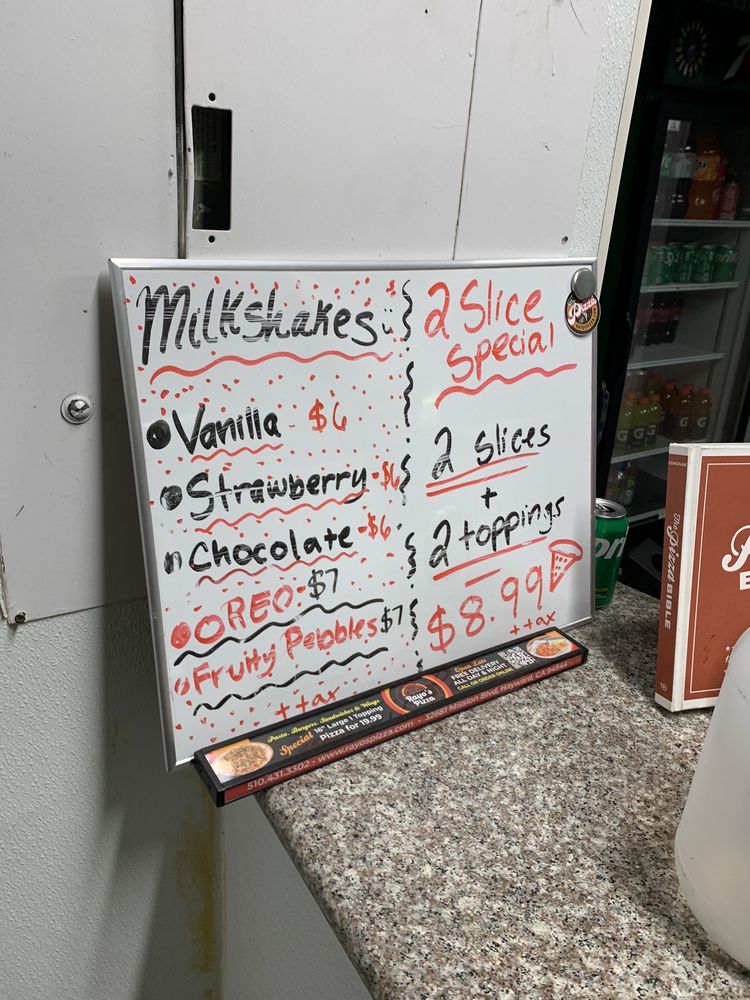 Milkshakes:
Vanilla - $6
Strawberry - $6
Chocolate - $6
OREO - $7
Fruity Pebbles $7
+tax
2 Slice
Special
2 slices
+
2 toppings
$8.99
+tax
Pizza
Pasta, Burgers, Sandwiches & Wings
Special 16" Large 1 Topping
Pizza for 19.99
Rayo's
Pizza
Open Late
FREE DELIVERY
ALL DAY & NIGHT
CALL OR ORDER ONLINE
510.431.3302 • www.rayospizza.com • 32681 Mission Blvd, Hayward, CA 94544
The Pizza BIBLE
G
G
G
G